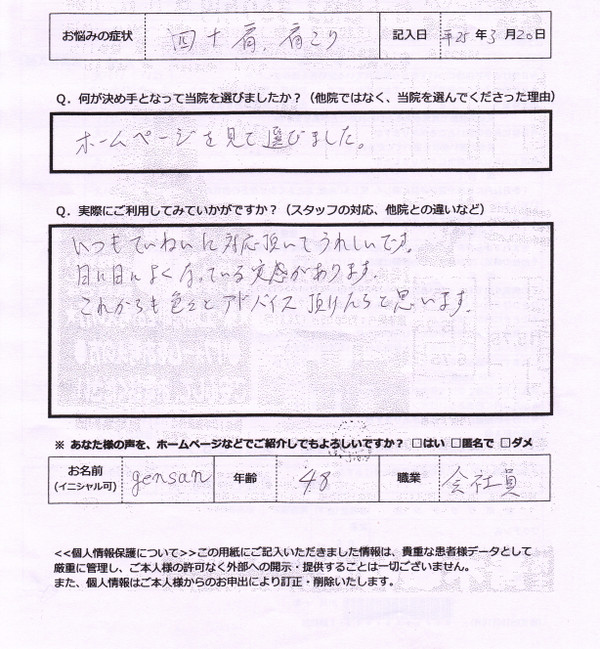 お悩みの症状 四十肩、肩こり 記入日 平25年3月20日
Q．何が決め手となって当院を選びましたか？（他院ではなく、当院を選んでくださった理由）
ホームページを見て選びました。
Q．実際にご利用してみていかがですか？（スタッフの対応、他院との違いなど）
いつもていねいに対応頂いてうれしいです。
日に日によくなっている実感があります。
これからも色々とアドバイス頂けたらと思います。
※ あなた様の声を、ホームページなどでご紹介してもよろしいですか？ □はい □匿名で □ダメ
お名前 gensan 年齢 48 職業 会社員
(イニシャル可)
<<個人情報保護について>>この用紙にご記入いただきました情報は、貴重な患者様データとして
厳重に管理し、ご本人様の許可なく外部への開示・提供することは一切ございません。
また、個人情報はご本人様からのお申出により訂正・削除いたします。